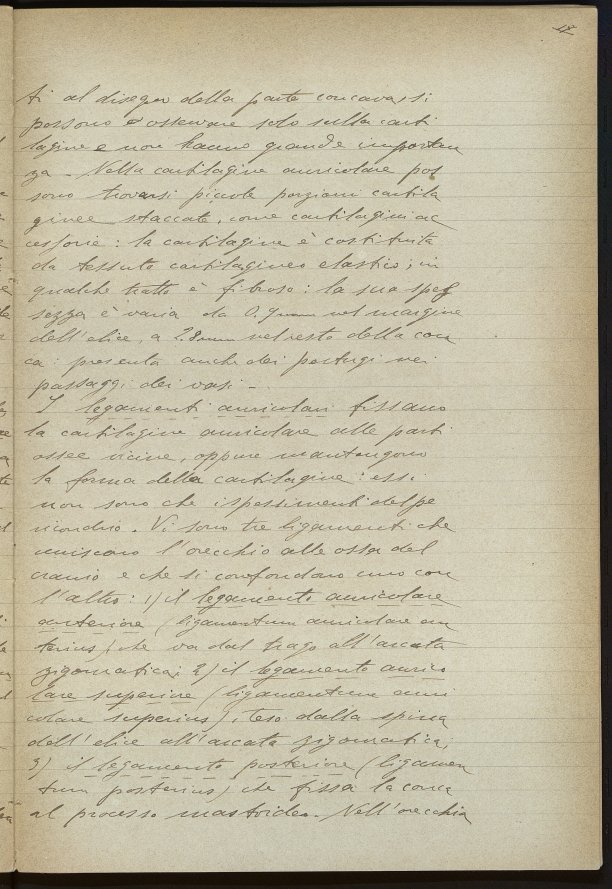 18
ti al disegno della parte concava, si
possono e osservare solo sulla carti
lagine e non hanno grande importan
za. Nella cartilagine auricolare pos
sono trovarsi piccole porzioni cartila
ginee staccate, come cartilagini ac
cessorie: la cartilagine è costituita
da tessuto cartilagineo elastico; in
qualche tratto è fibroso: la sua spes
sezza è varia da 0.9mm nel margine
dell'elice, a 2.8mm nel resto della con
ca: presenta anche dei pertugi nei
passaggi dei vasi.
I legamenti auricolari fissano
la cartilagine auricolare alle parti
ossee vicine, oppure mantengono
la forma della cartilagine: essi
non sono che ispessimenti del pe
ricondrio. Vi sono tre ligamenti che
uniscono l'orecchio alle ossa del
cranio e che si confondono uno con
l'altro: 1) il legamento auricolare
anteriore (ligamentum auricolare an
terius) che va dal trago all'arcata
zigomatica; 2) il legamento aurico
lare superiore (ligamentum auri
colare superius), teso dalla spina
dell'elice all'arcata zigomatica;
3) il legamento posteriore (ligamen
tum posterius) che fissa la conca
al processo mastoideo. Nell'orecchia